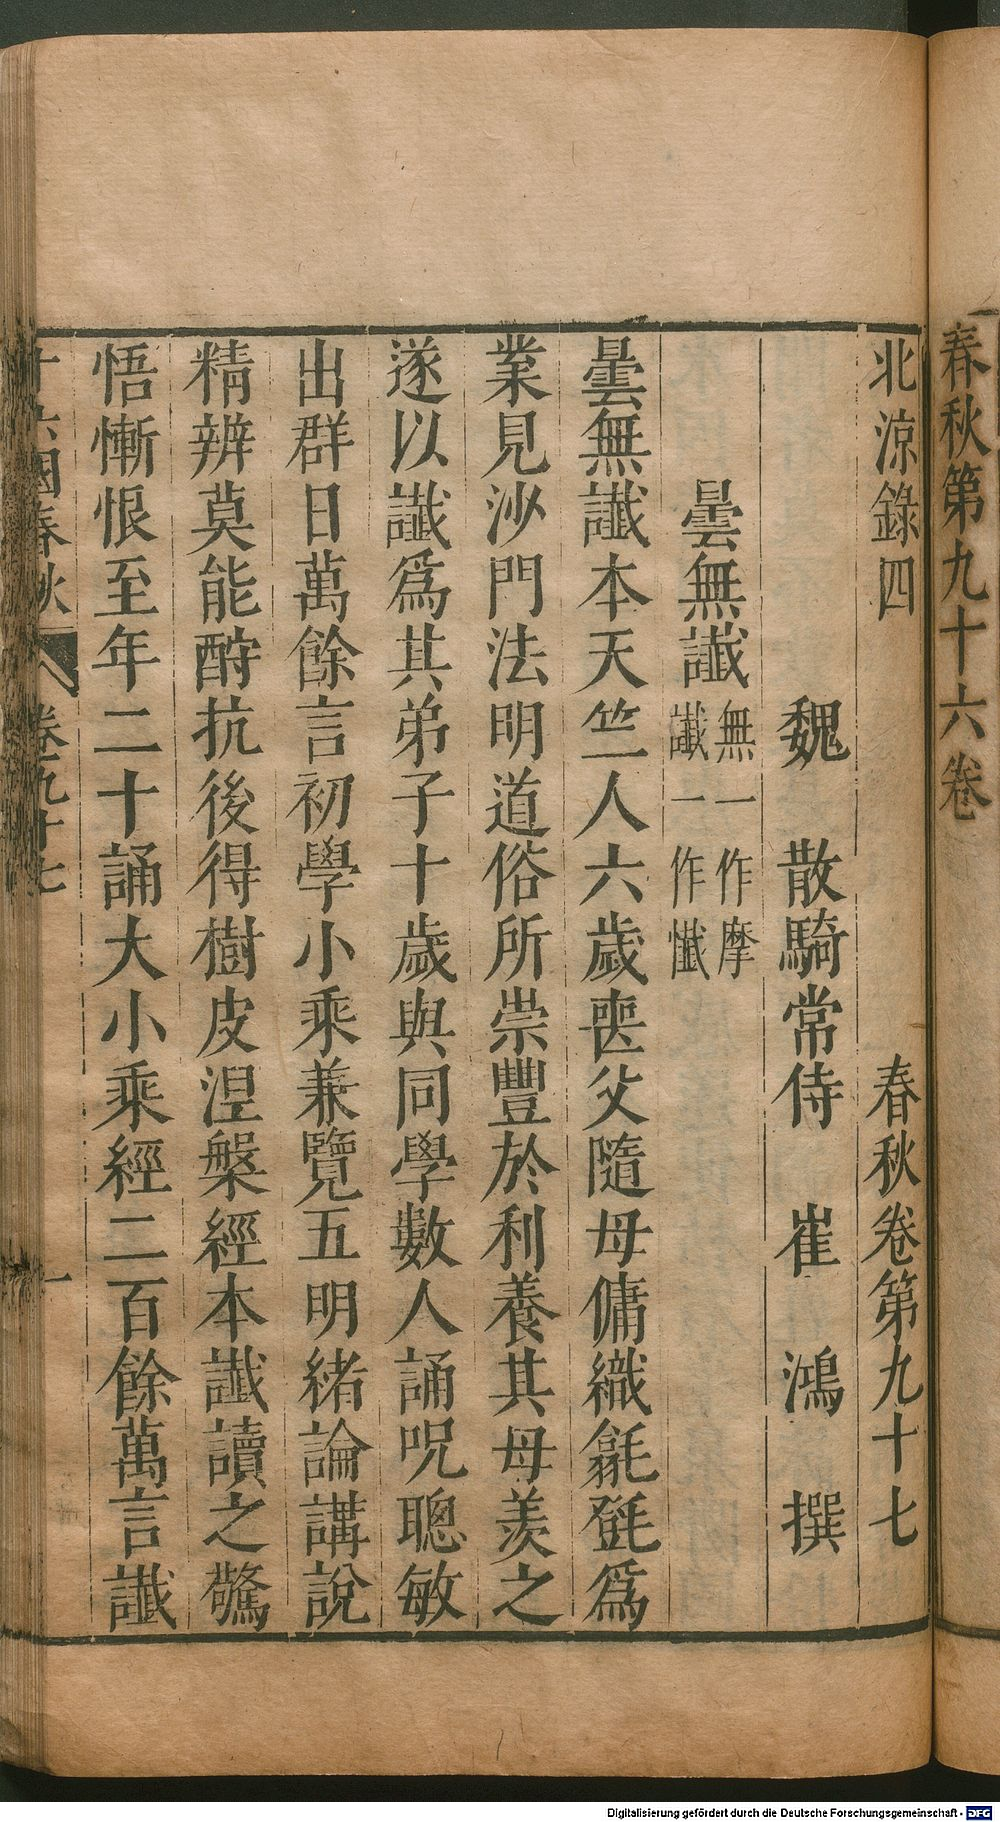 春秋第九十六卷
北涼錄四 春秋卷第九十七
魏 散騎常侍 崔 鴻 撰
曇無讖 無一作摩
讖一作懺
曇無讖本天竺人六歲喪父隨母傭織毹㲪爲
業見沙門法明道俗所崇豐於利養其母羨之
遂以讖爲其弟子十歲與同學數人誦呪聰敏
出群日萬餘言初學小乘兼覽五明緒論講說
精辨莫能酧抗後得樹皮涅槃經本讖讀之驚
悟慚恨至年二十誦大小乘經二百餘萬言讖
十六國春秋 卷九十七 一
Digitalisierung gefördert durch die Deutsche Forschungsgemeinschaft - DFG